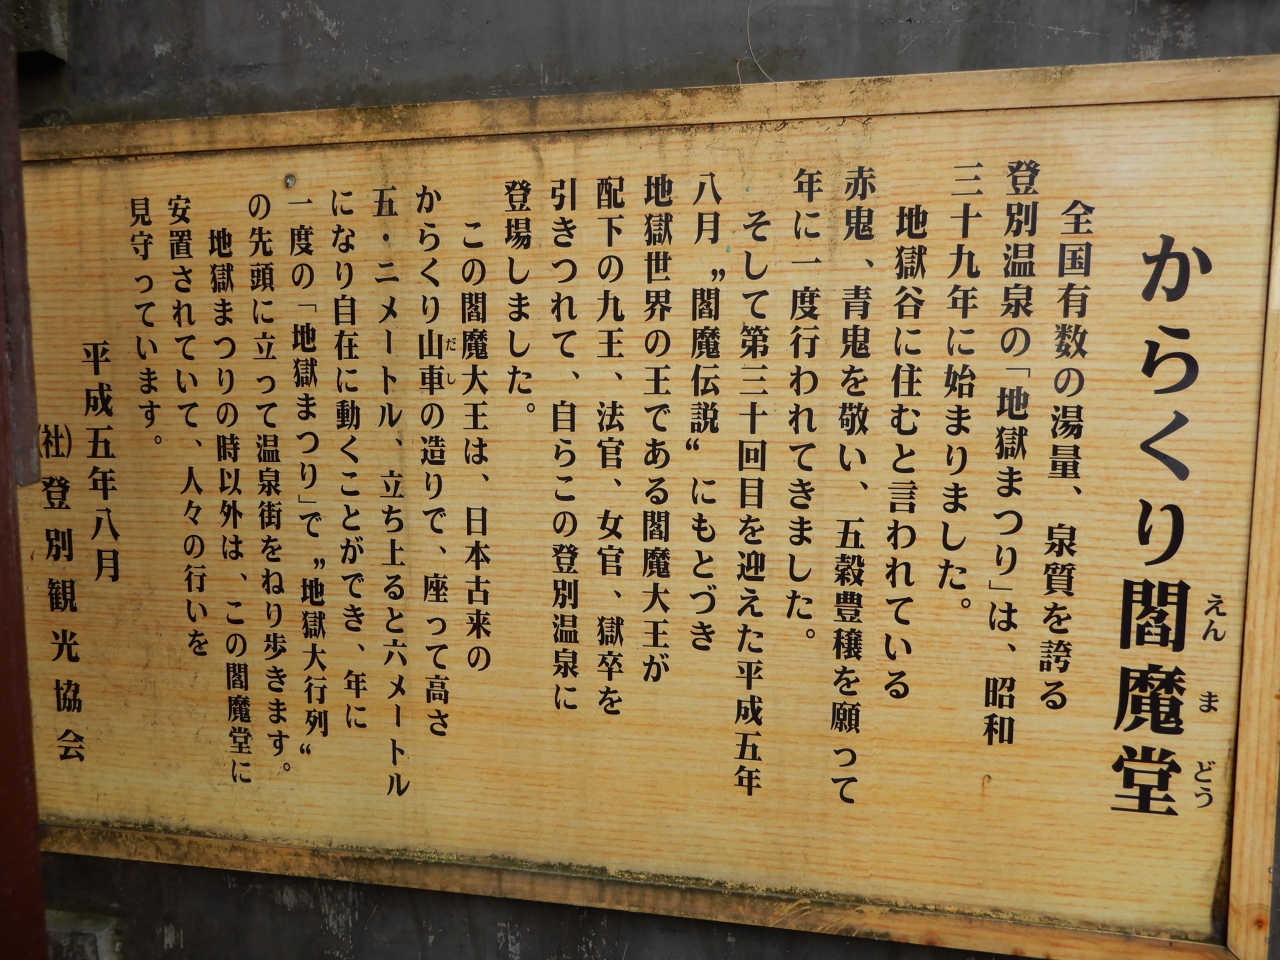 からくり閻魔堂
えんまどう
全国有数の湯量、泉質を誇る
登別温泉の「地獄まつり」は、昭和
三十九年に始まりました。
地獄谷に住むと言われている
赤鬼、青鬼を敬い、五穀豊穣を願って
年に一度行われてきました。
そして第三十回目を迎えた平成五年
八月〝閻魔伝説〟にもとづき
地獄世界の王である閻魔大王が
配下の九王、法官、女官、獄卒を
引きつれて、自らこの登別温泉に
登場しました。
この閻魔大王は、日本古来の
からくり山車の造りで、座って高さ
だし
五・二メートル、立ち上ると六メートル
になり自在に動くことができ、年に
一度の「地獄まつり」で〝地獄大行列〟
の先頭に立って温泉街をねり歩きます。
地獄まつりの時以外は、この閻魔堂に
安置されていて、人々の行いを
見守っています。
平成五年八月
(社)登別観光協会